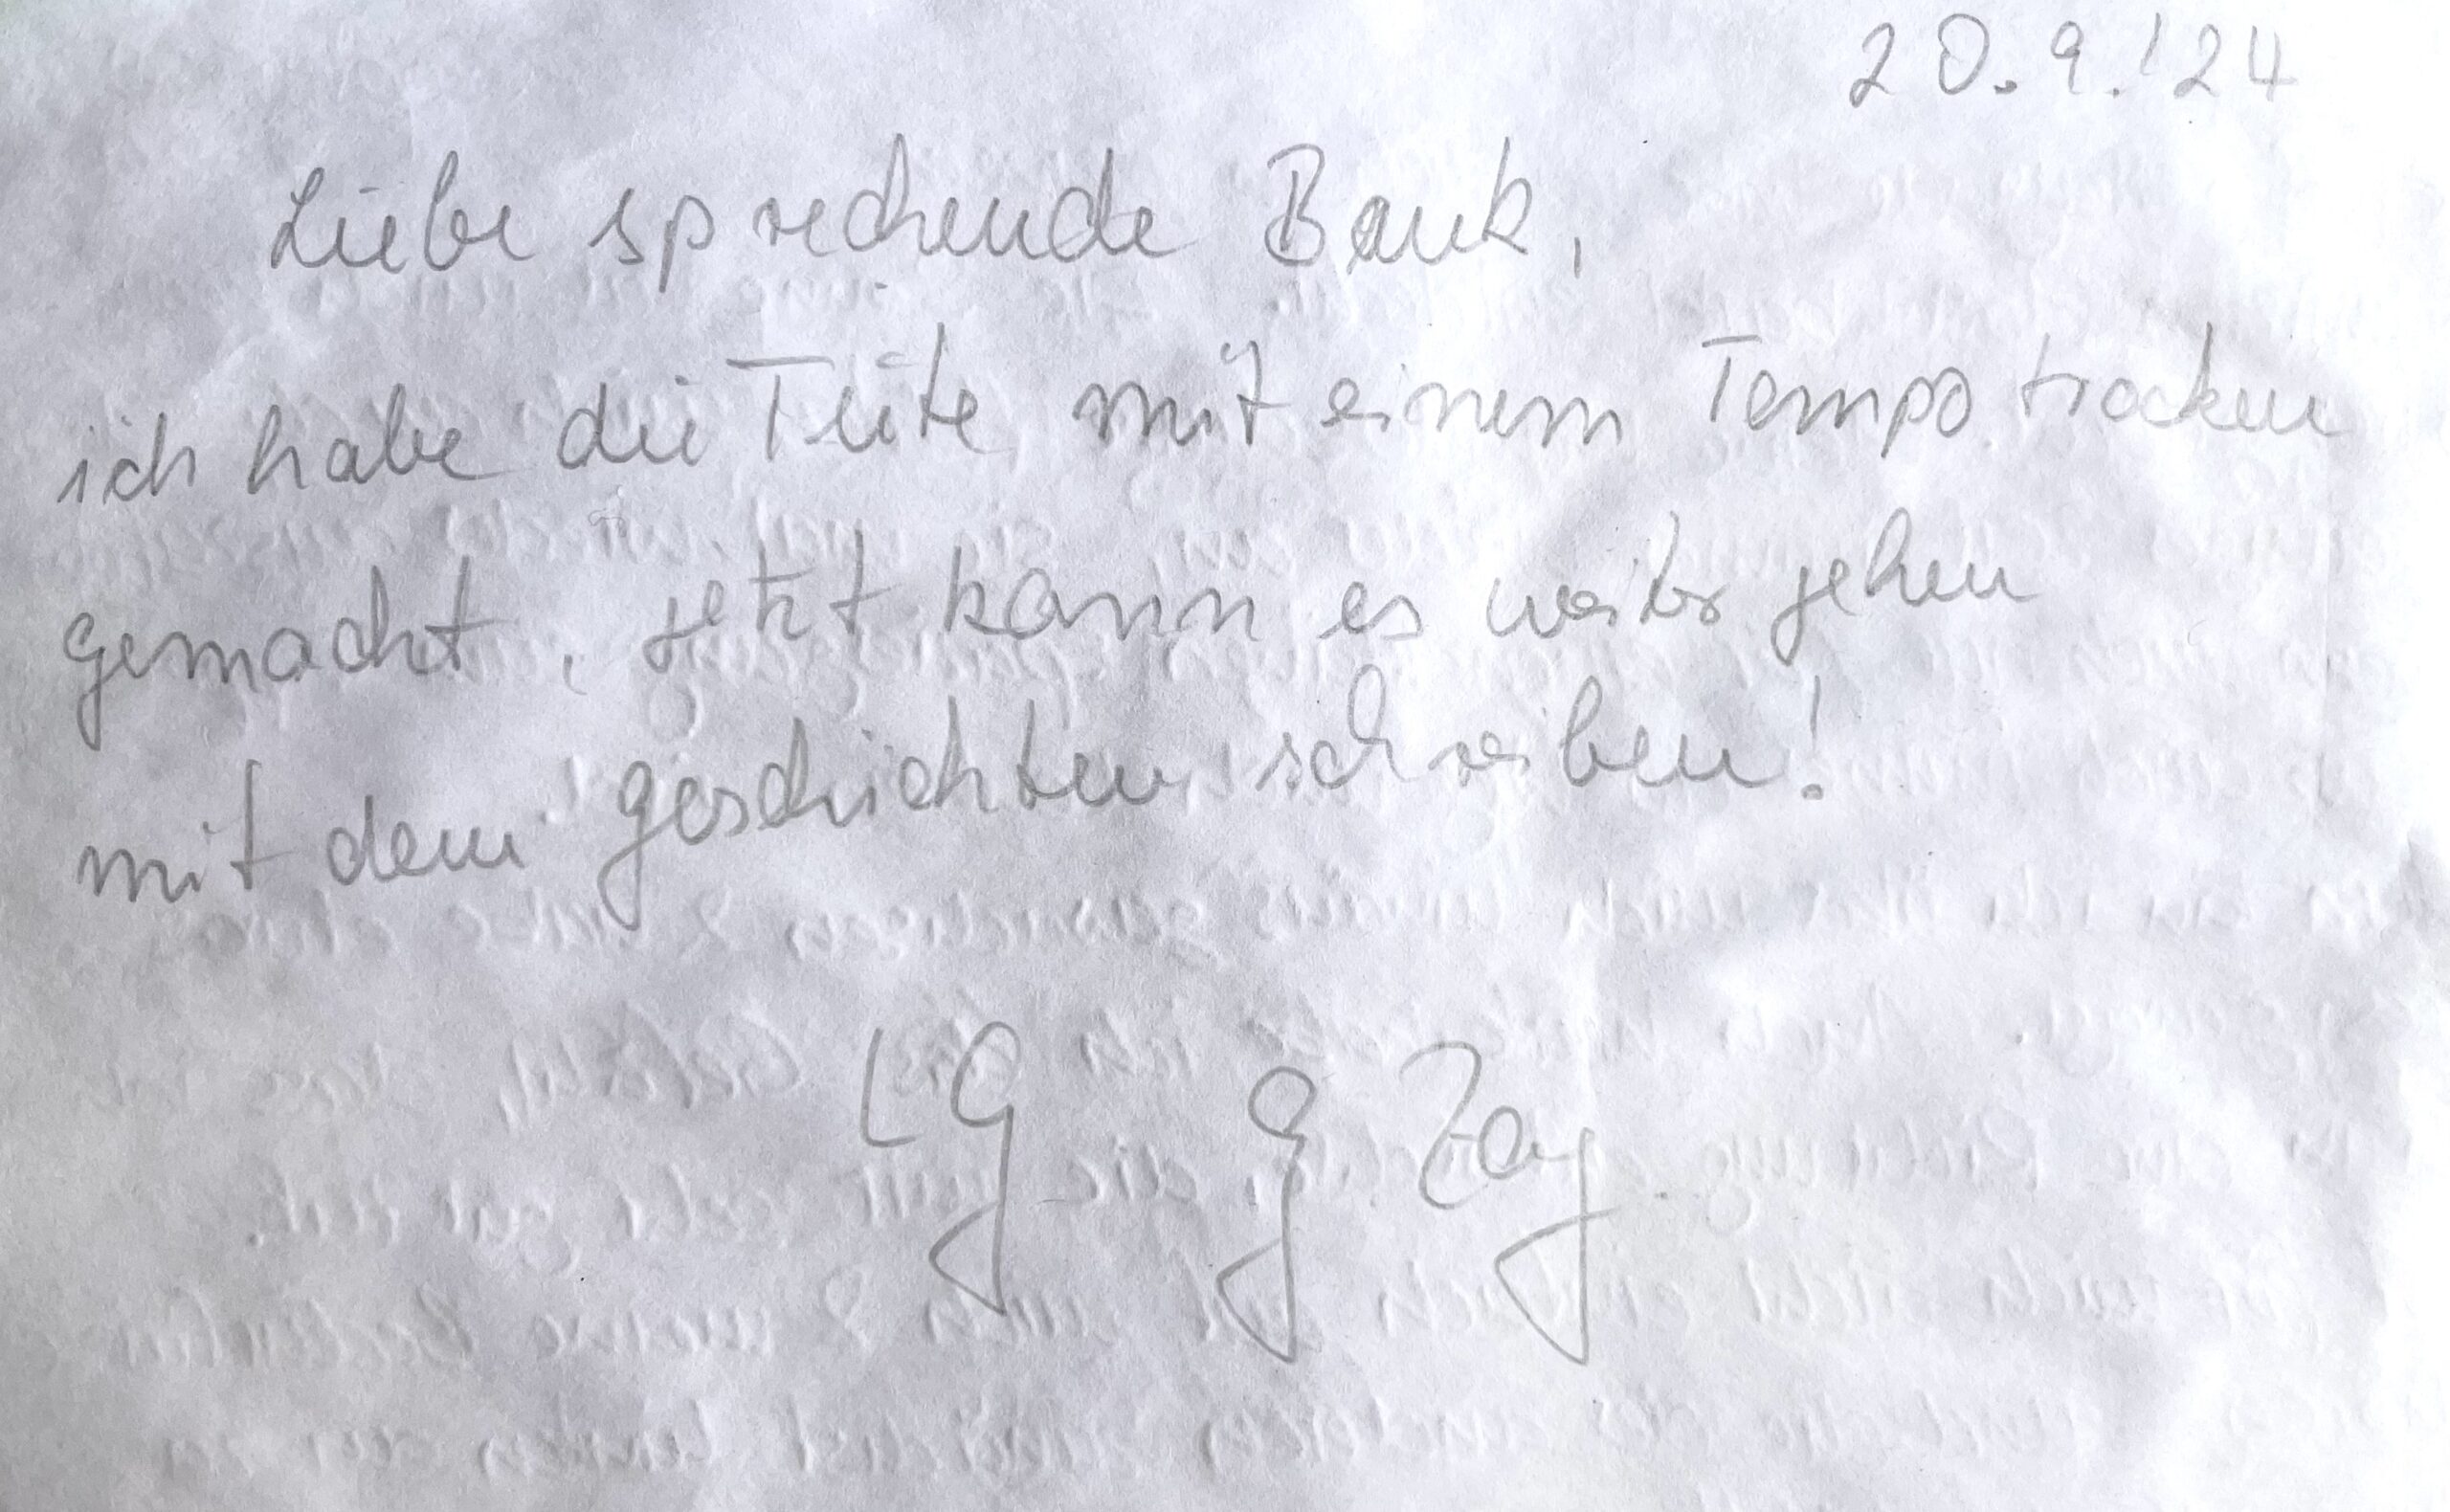 20.9.'24
Liebe sprechende Bank,
ich habe die Tüte mit einem Tempo trocken
gemacht, jetzt kann es weiter gehen
mit dem geschichten schreiben!
LG G Zay